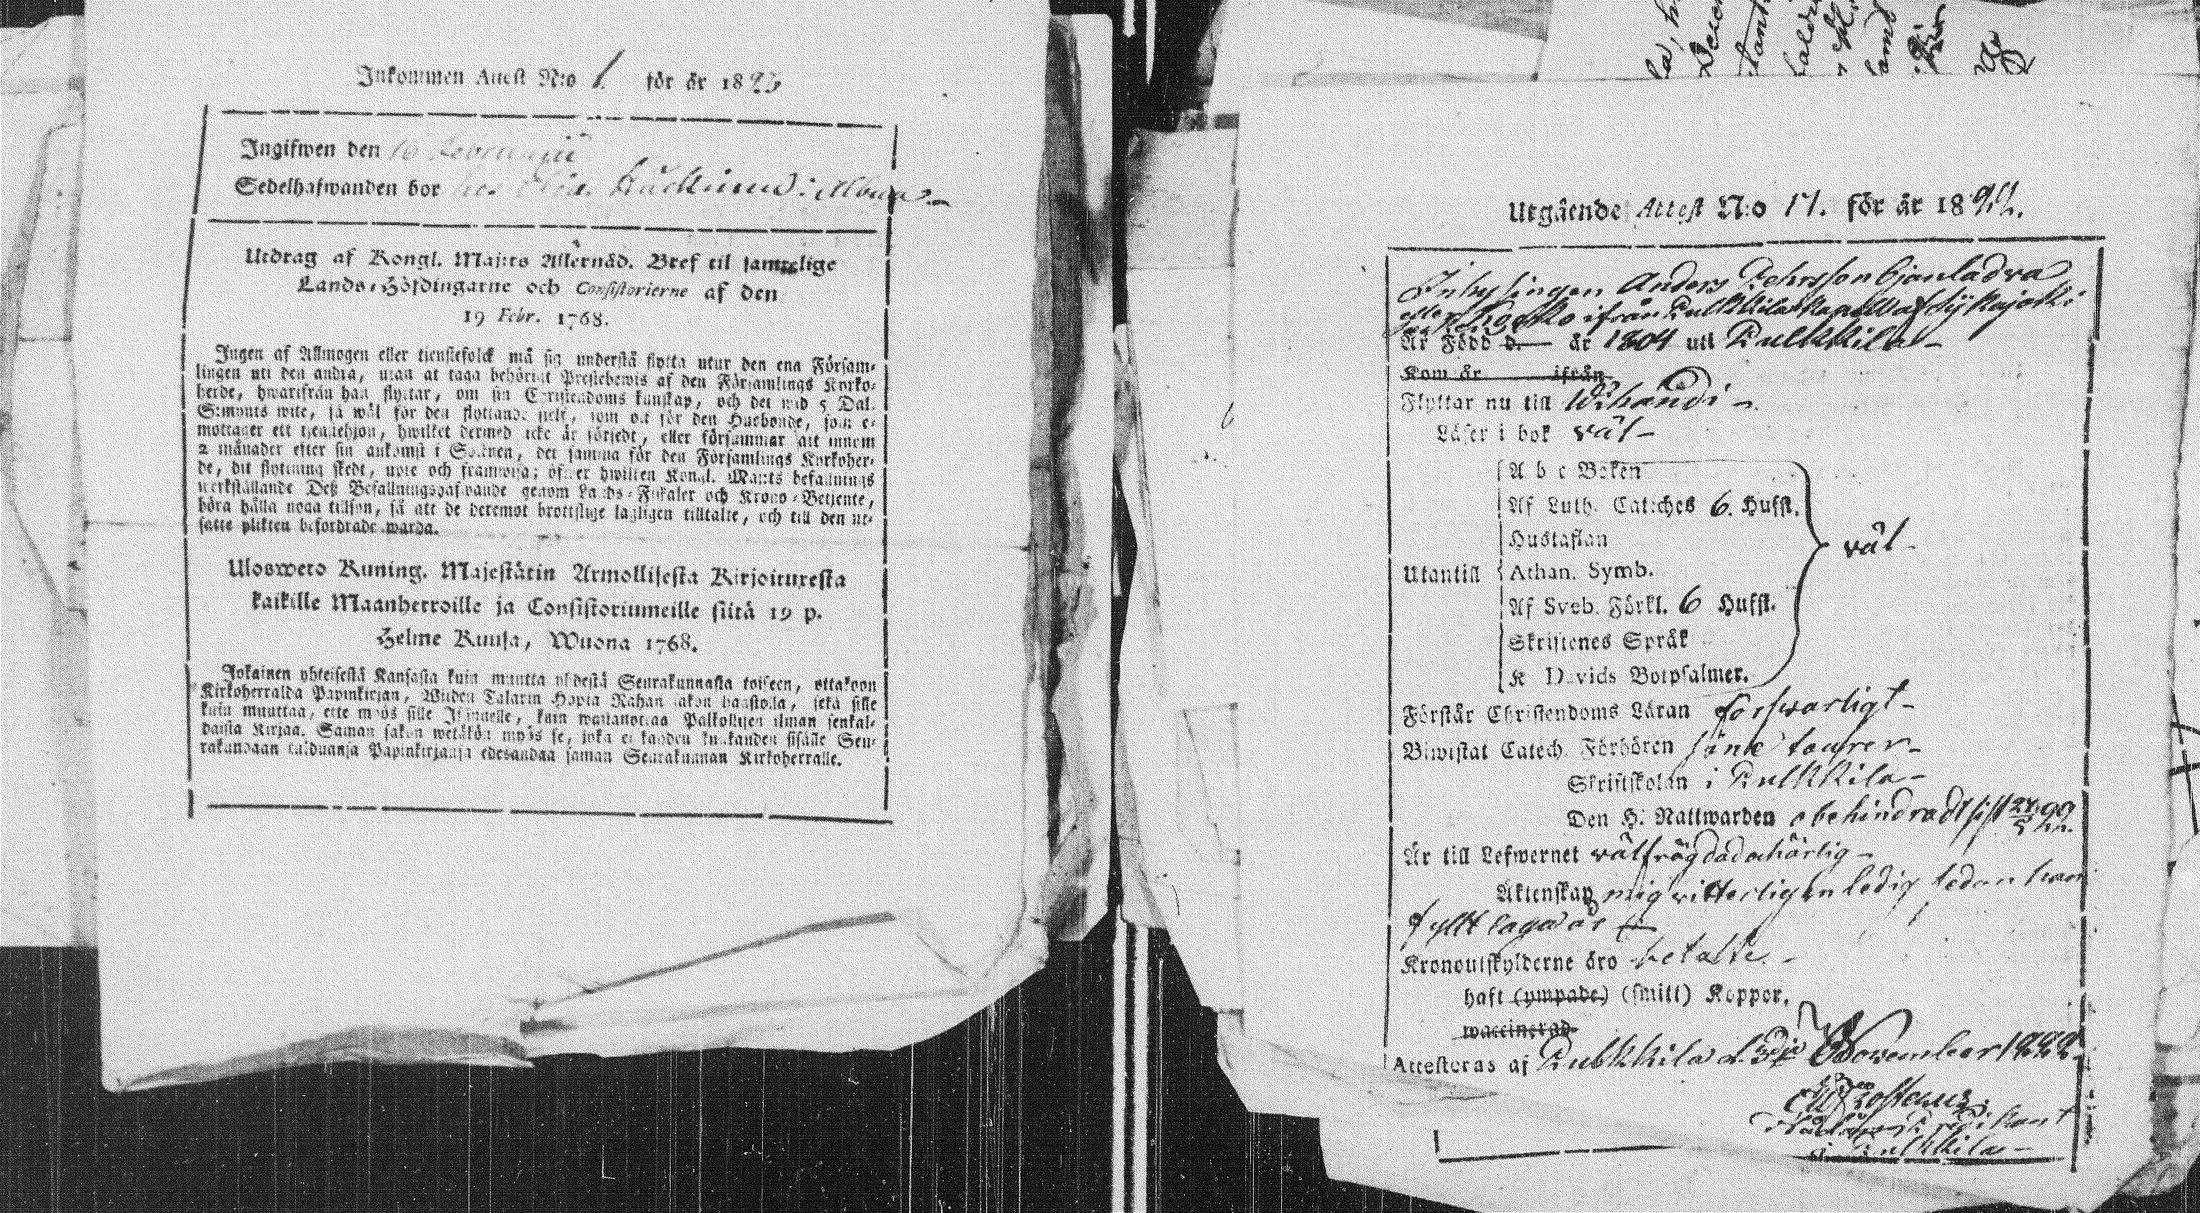 Inkommen Attest N:o 1. för år 1823
Ingifwen den 16 Februarii
Sedelhafwanden bor hos
Utdrag af Kongl. Maj:ts Allernåd. Bref til samtelige
Lands-Höfdingarne och Consistorierne af den
19 Febr. 1768.
Ingen af Allmogen eller tienstefolck må sig understå flytta utur den ena Försam-
lingen uti den andra, utan at taga behörigt Prestebewis af den Församlings Kyrko-
herde, hwarifrån han flyttar, om sin Christendoms kunskap, och det wid 5 Dal.
S:mynts wite, så wäl för den flyttande sielf, som ock för den Husbonde, som e-
mottager ett tienstehjon, hwilket dermed icke är försedt, eller försummar att innom
2 månader efter sin ankomst i Socknen, det samma för den Församlings Kyrkoher-
de, dit flyttning skedt, upte och framwisa; öfwer hwilken Kongl. Maj:ts befallnings
werkställande Deß Befallningshafwande genom Lands-Fiskaler och Krono-Betjente,
böra hålla noga tillsyn, så att de deremot brottslige lagligen tilltalte, och till den ut-
satte plikten befordrade warda.
Ulosweto Kuning. Majestätin Armollisesta Kirjoituresta
kaikille Maanherroille ja Consistoriumeille siitä 19 p.
Helme Kuusa, Wuona 1768.
Jokainen yhteisestä Kansasta kuin muutta yhdestä Seurakunnasta toiseen, ottakoon
Kirkoherralda Papinkirjan, Wiiden Talarin Hopia Rahan sakon haastolla, sekä sille
kuin muuttaa, ette myös sille Isännelle, kuin wastanottaa Palkollisen ilman senkal-
daista Kirjaa. Saman sakon wetäkön myös se, joka ei kahden kuukauden sisälle Seu-
rakundaan tulduansa Papinkirjansa edesandaa saman Seurakunnan Kirkoherralle.
Utgående Attest N:o 17. för år 1822.
Inhysingen Anders Pehrsson Gjanladra
ifrån Pulkkila Kapell af Sijkajoki
Är Född d. år 1804 uti Pulkkila
Kom år ifrån
Flyttar nu till Wihandi
Läser i bok väl
A b c Boken
Af Luth. Cateches 6. Hufst.
Hustaflan
Utantill Athan. Symb. väl
Af Sveb. Förkl. 6 Hufst.
Skriftenes Språk
K Davids Botpsalmer.
Förstår Christendoms Läran försvarligt
Biwistat Catech. Förhören
Skriftskolan i Pulkkila
Den H. Nattwarden obehindradt sist
Är till Lefwernet välfrägdad och ärlig
Äktenskap mig vitterligen ledig sedan han
fyllt laga år
Kronoutskylderne äro betalte
haft (ympade) (smitt) Koppor,
waccinerad
Attesteras af Pulkkila d. November 1822
Pulkkila